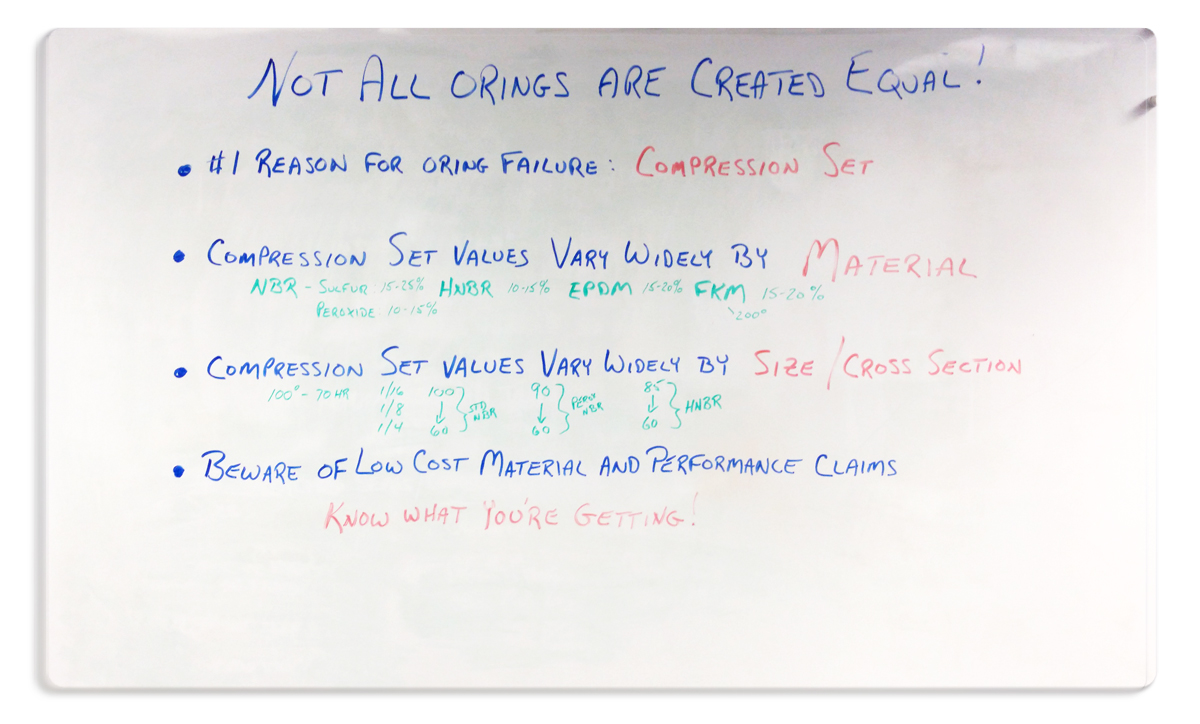 NOT ALL ORINGS ARE CREATED EQUAL!
• #1 REASON FOR ORING FAILURE: COMPRESSION SET
• COMPRESSION SET VALUES VARY WIDELY BY MATERIAL
NBR - SULFUR: 15-25% HNBR 10-15% EPDM 15-20% FKM 15-20%
PEROXIDE: 10-15% \200°
• COMPRESSION SET VALUES VARY WIDELY BY SIZE/CROSS SECTION
100° - 70 HR 1/16 100 90 85
1/8 ↓ } STD NBR ↓ } PEROX NBR ↓ } HNBR
1/4 60 60 60
• BEWARE OF LOW COST MATERIAL AND PERFORMANCE CLAIMS
KNOW WHAT YOU'RE GETTING!